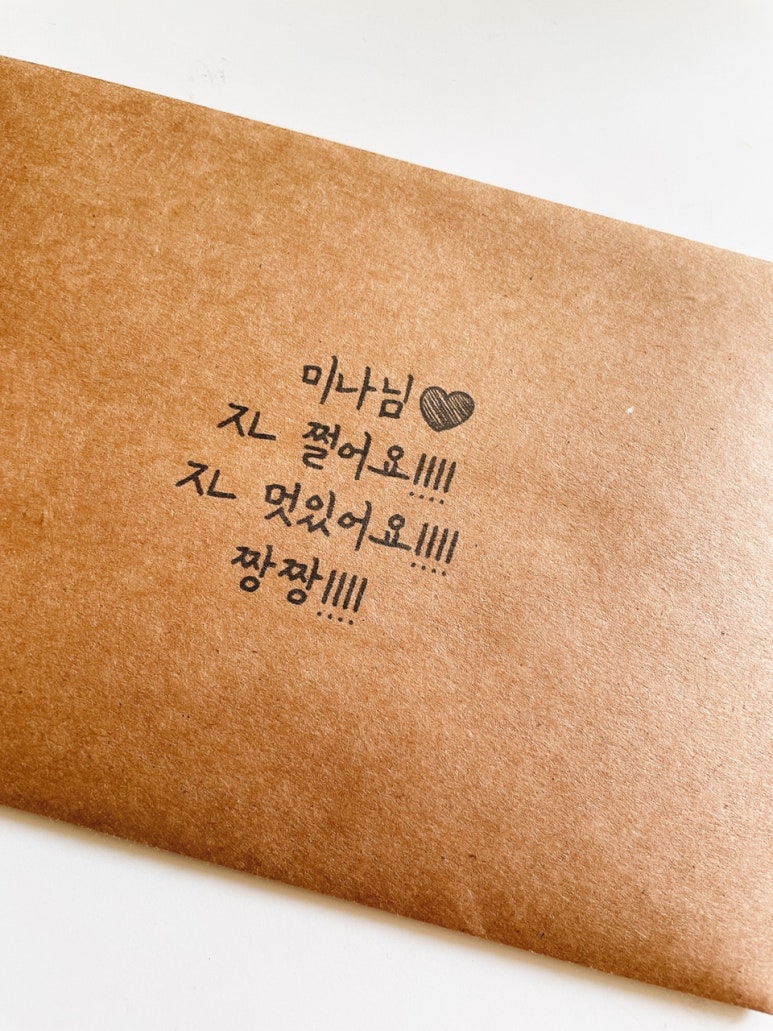 미나님♥
ㅈㄴ 쩔어요!!!!
ㅈㄴ 멋있어요!!!!
짱짱!!!!